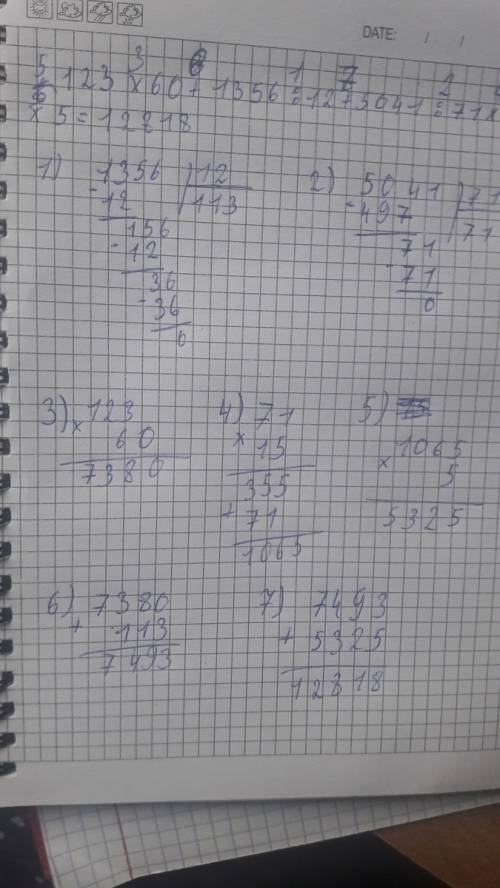 DATE: / /
3 1 7 2
123 x 60 + 1356 : 12 + 5041 : 71 x
x 5 = 12818
1) 1356 | 12
- 12 | 113
156
- 12
36
- 36
0
2) 5041 | 71
- 497 | 71
71
- 71
0
3) x 123
60
7380
4) 71
x 15
355
+ 71
1065
5)
1065
x 5
5325
6) 7380
+ 113
7493
7) 7493
+ 5325
12818